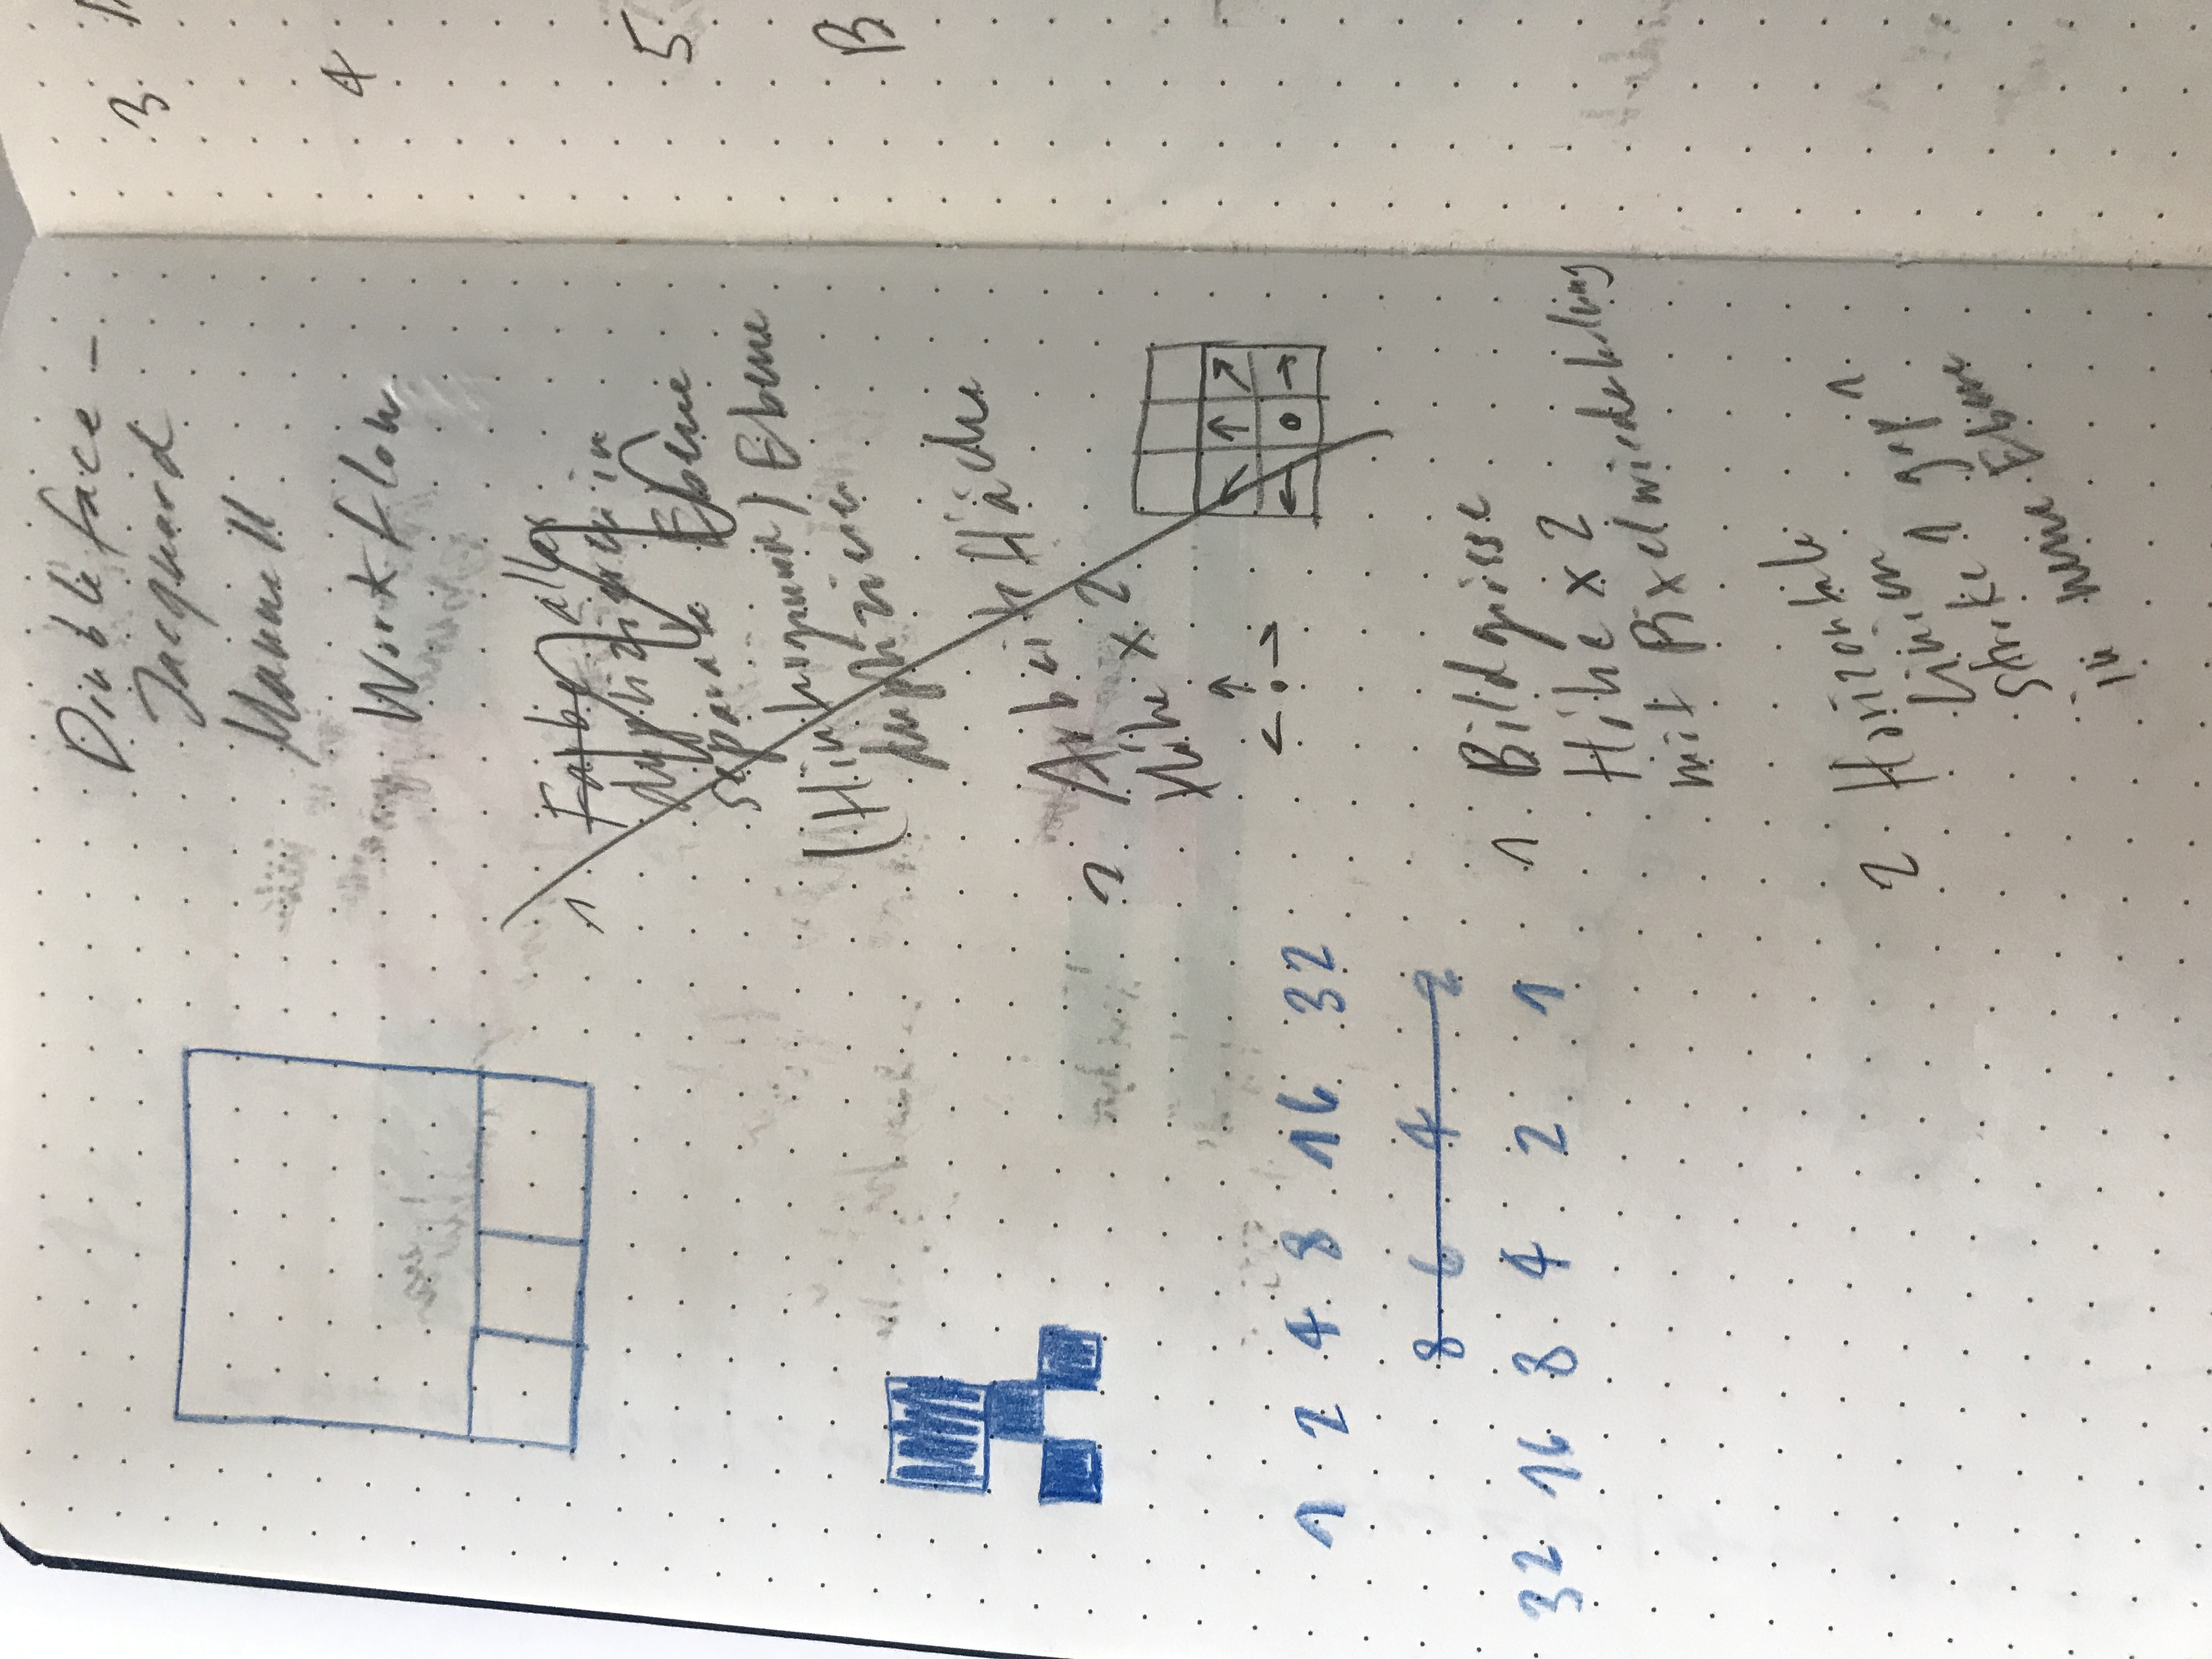 Double face -
Jacquard
Manuell
Workflow
1 Farbe alle
duplizieren in
separate Ebene
(Hintergrund) Ebene
duplizieren
2 Arbeitsfläche
Höhe x 2
1 2 4 8 16 32
8 6 4 2
32 16 8 4 2 1
1 Bildgrösse
Höhe x 2
mit Pixelwiederholung
2 Horizontale
Linien 1 px
Stärke 1
in neue Ebene
3
4
5
B